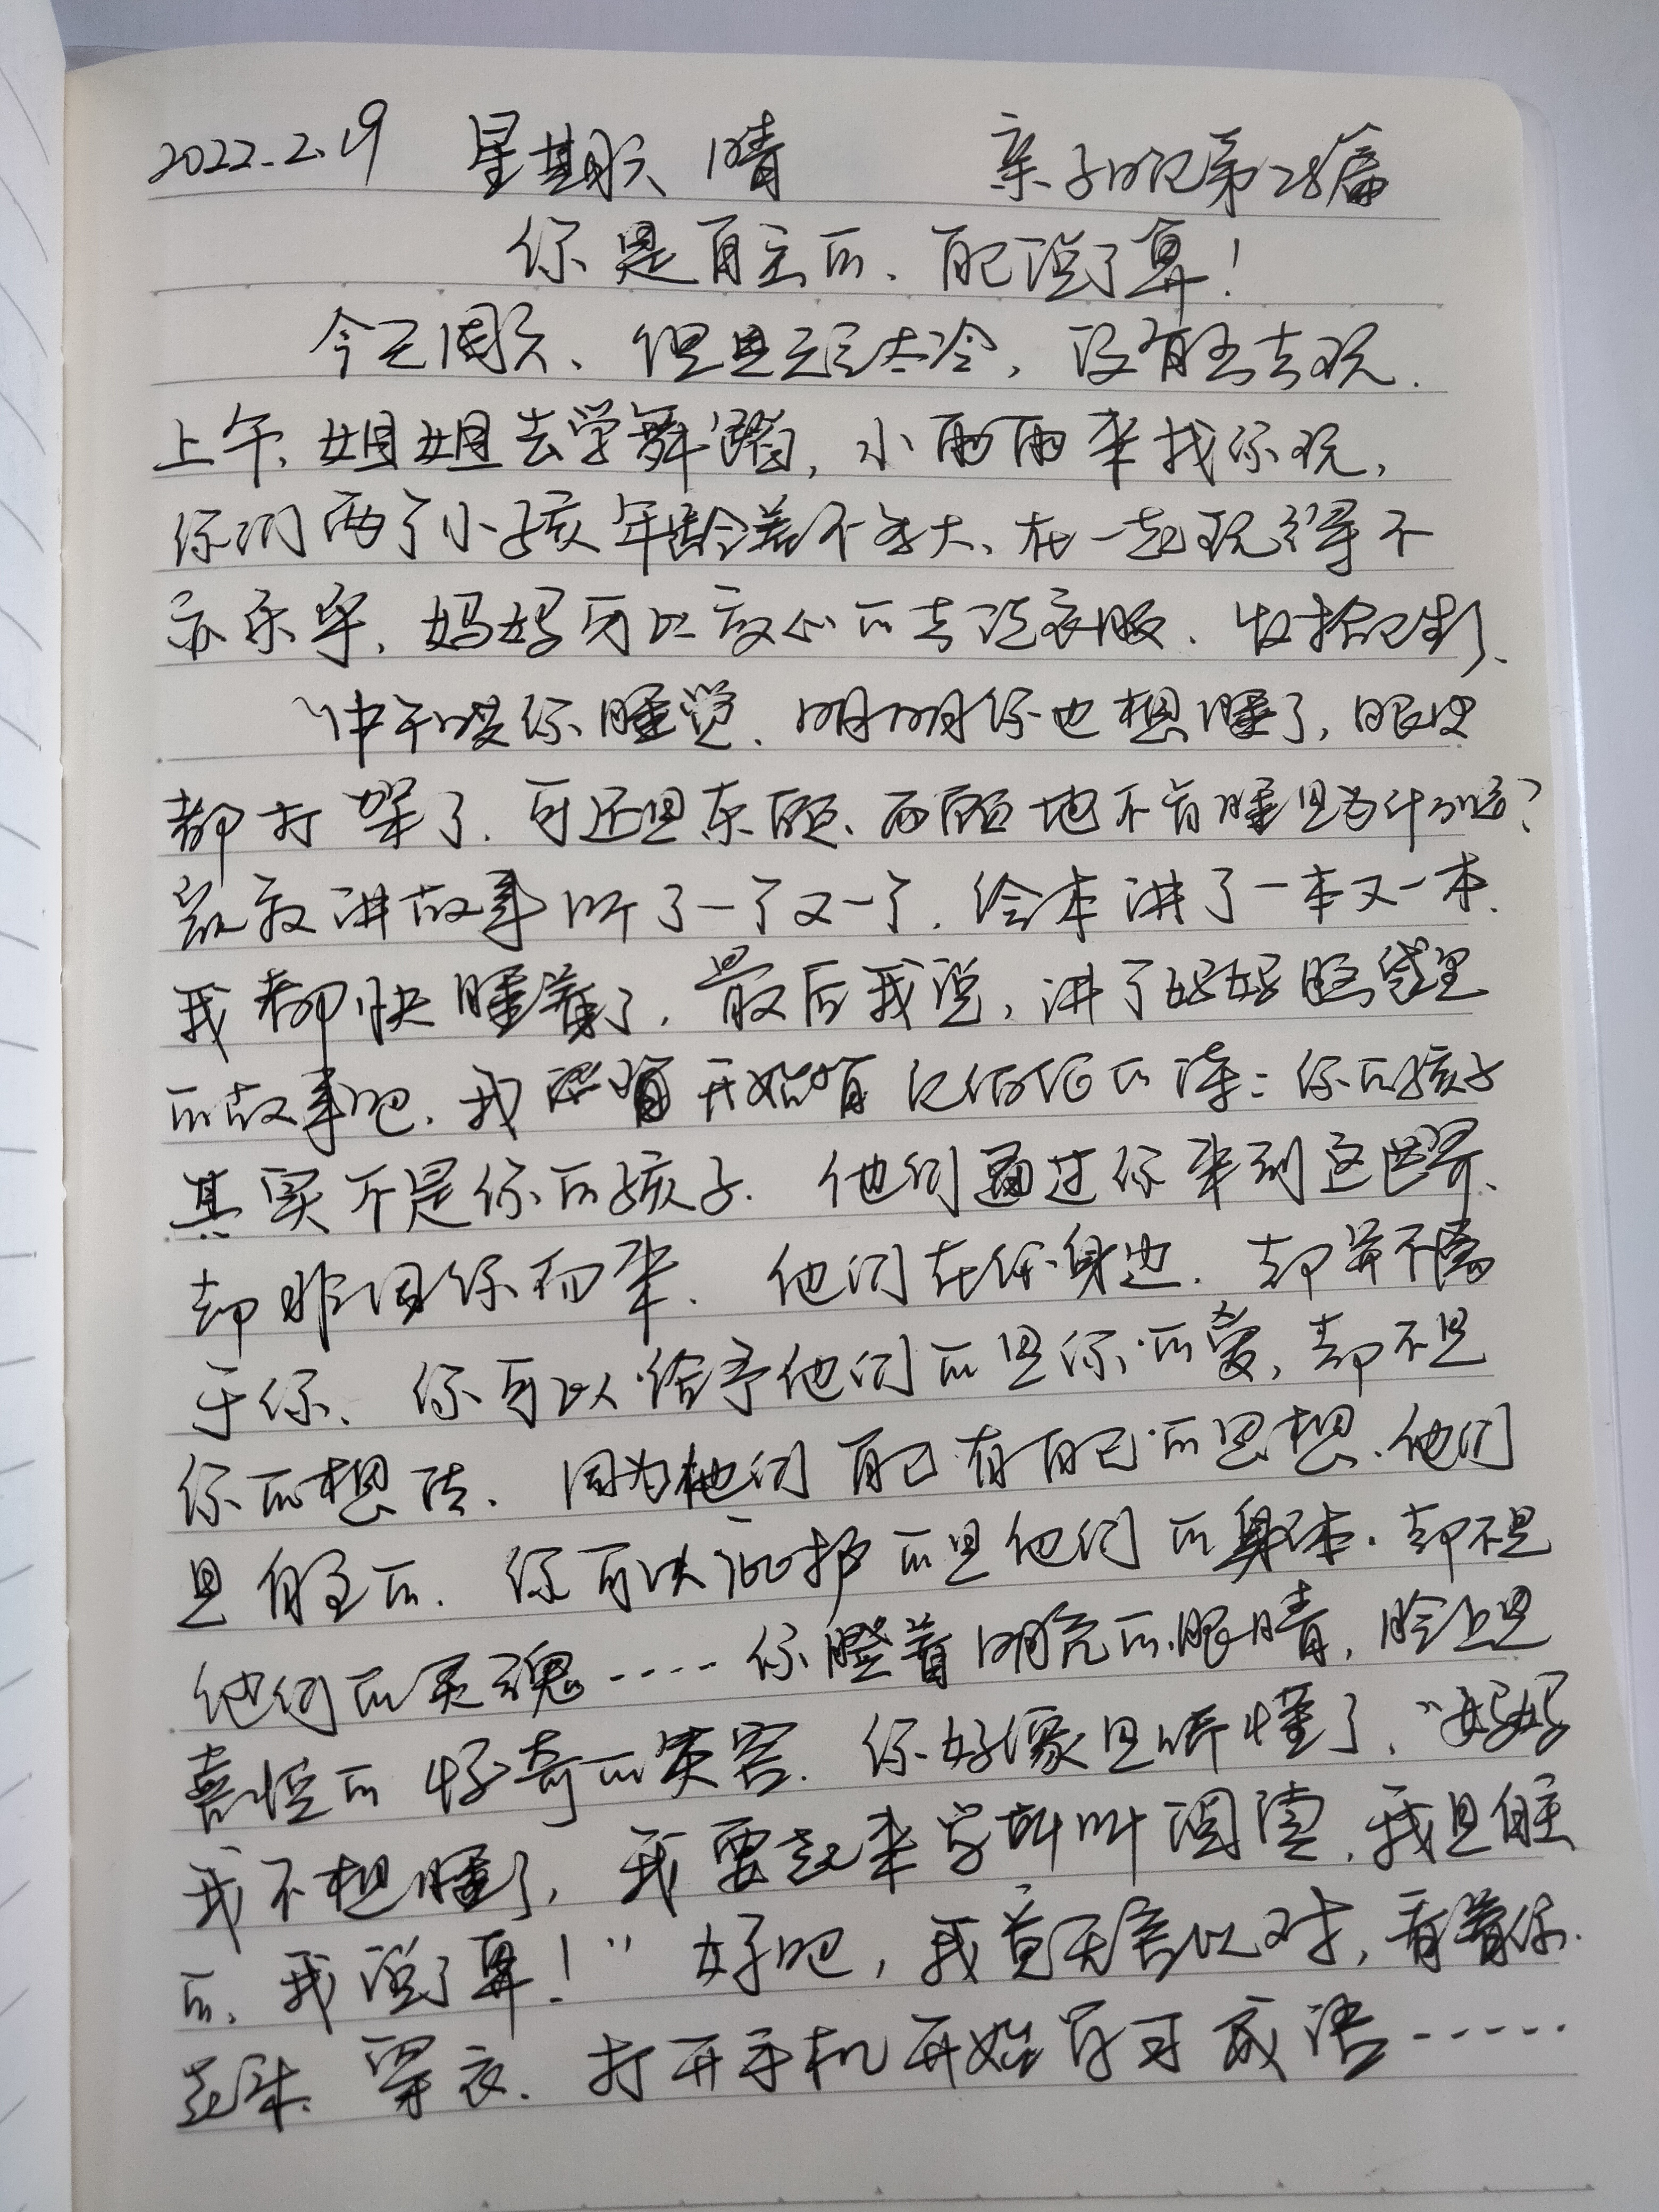 2022.2.19 星期六 晴 亲子日记第28篇
你是自主的、自己说了算!
今天周六、但是天气太冷,没有出去玩.
上午、姐姐去学舞蹈,小雨雨来找你玩,
你们两个小孩年龄差不多大、在一起玩得不
亦乐乎,妈妈可以放心的去洗衣服、收拾卫生了、
中午哄你睡觉、明明你也想睡了,眼皮
都打架了、可还是东顾、西顾地不肯睡是为什么呢?
凯叔讲故事听了一个又一个,绘本讲了一本又一本、
我都快睡着了,最后我说,讲个妈妈脑袋里
的故事吧、我 开始背纪伯伦的诗:你的孩子
其实不是你的孩子、他们通过你来到这世界、
却非因你而来、他们在你身边、却并不属
于你、你可以给予他们的是你的爱,却不是
你的想法、因为他们自己有自己的思想、他们
是自主的、你可以庇护的是他们的身体、却不是
他们的灵魂……你瞪着明亮的眼睛,脸上是
喜悦的好奇的笑容、你好像是听懂了,“妈妈
我不想睡了,我要起来学斑叫阅读,我是自主
的、我说了算!”好吧,我竟无言以对,看着你
起床、穿衣、打开手机开始学习成语……